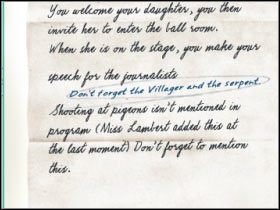 You welcome your daughter, you then
invite her to enter the ball room.
When she is on the stage, you make your
speech for the journalists
Don't forget the Villager and the serpent
Shooting at pigeons isn't mentioned in
program (Miss Lambert added this at
the last moment) Don't forget to mention
this.